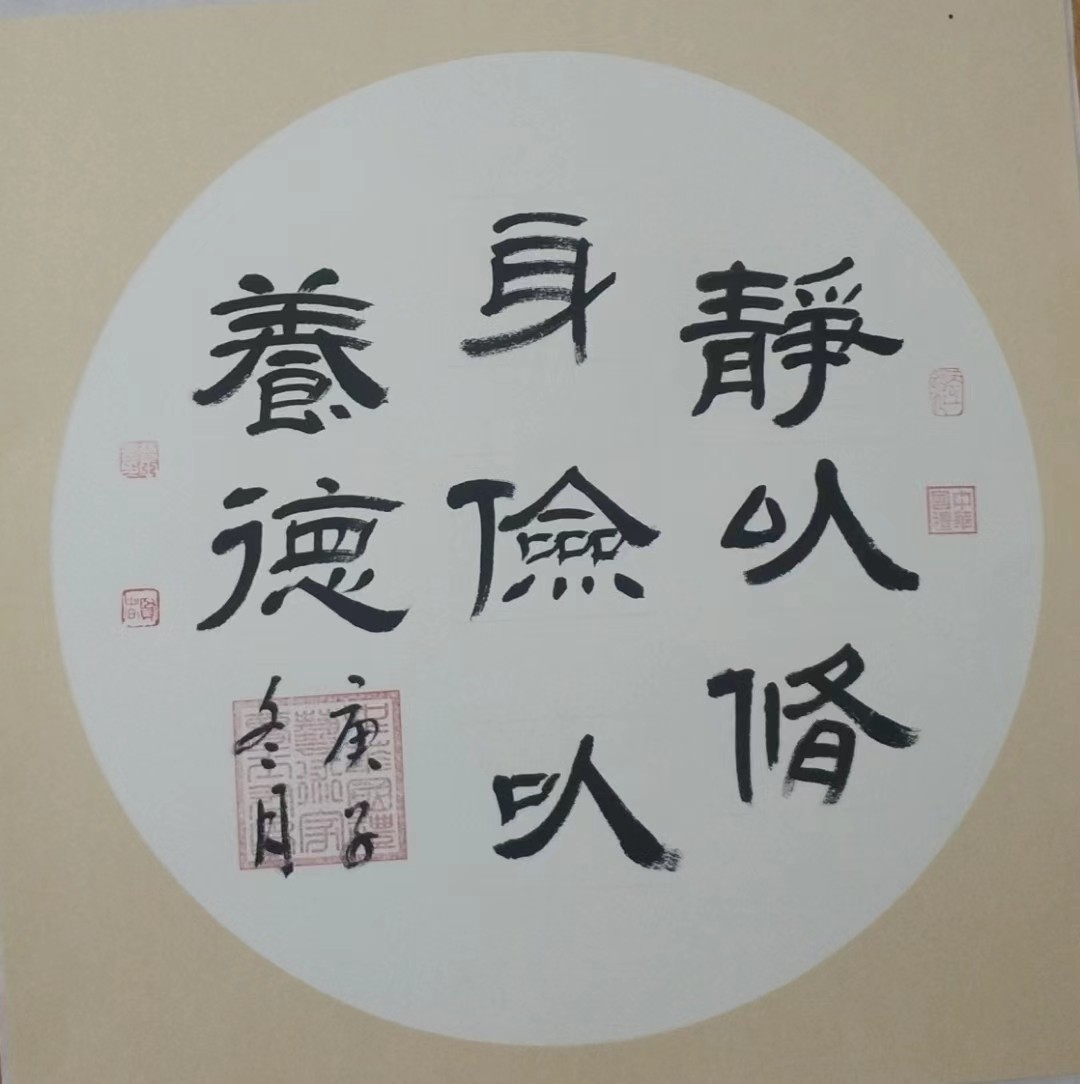 靜以脩
身儉以
養德
庚子
冬月
中華